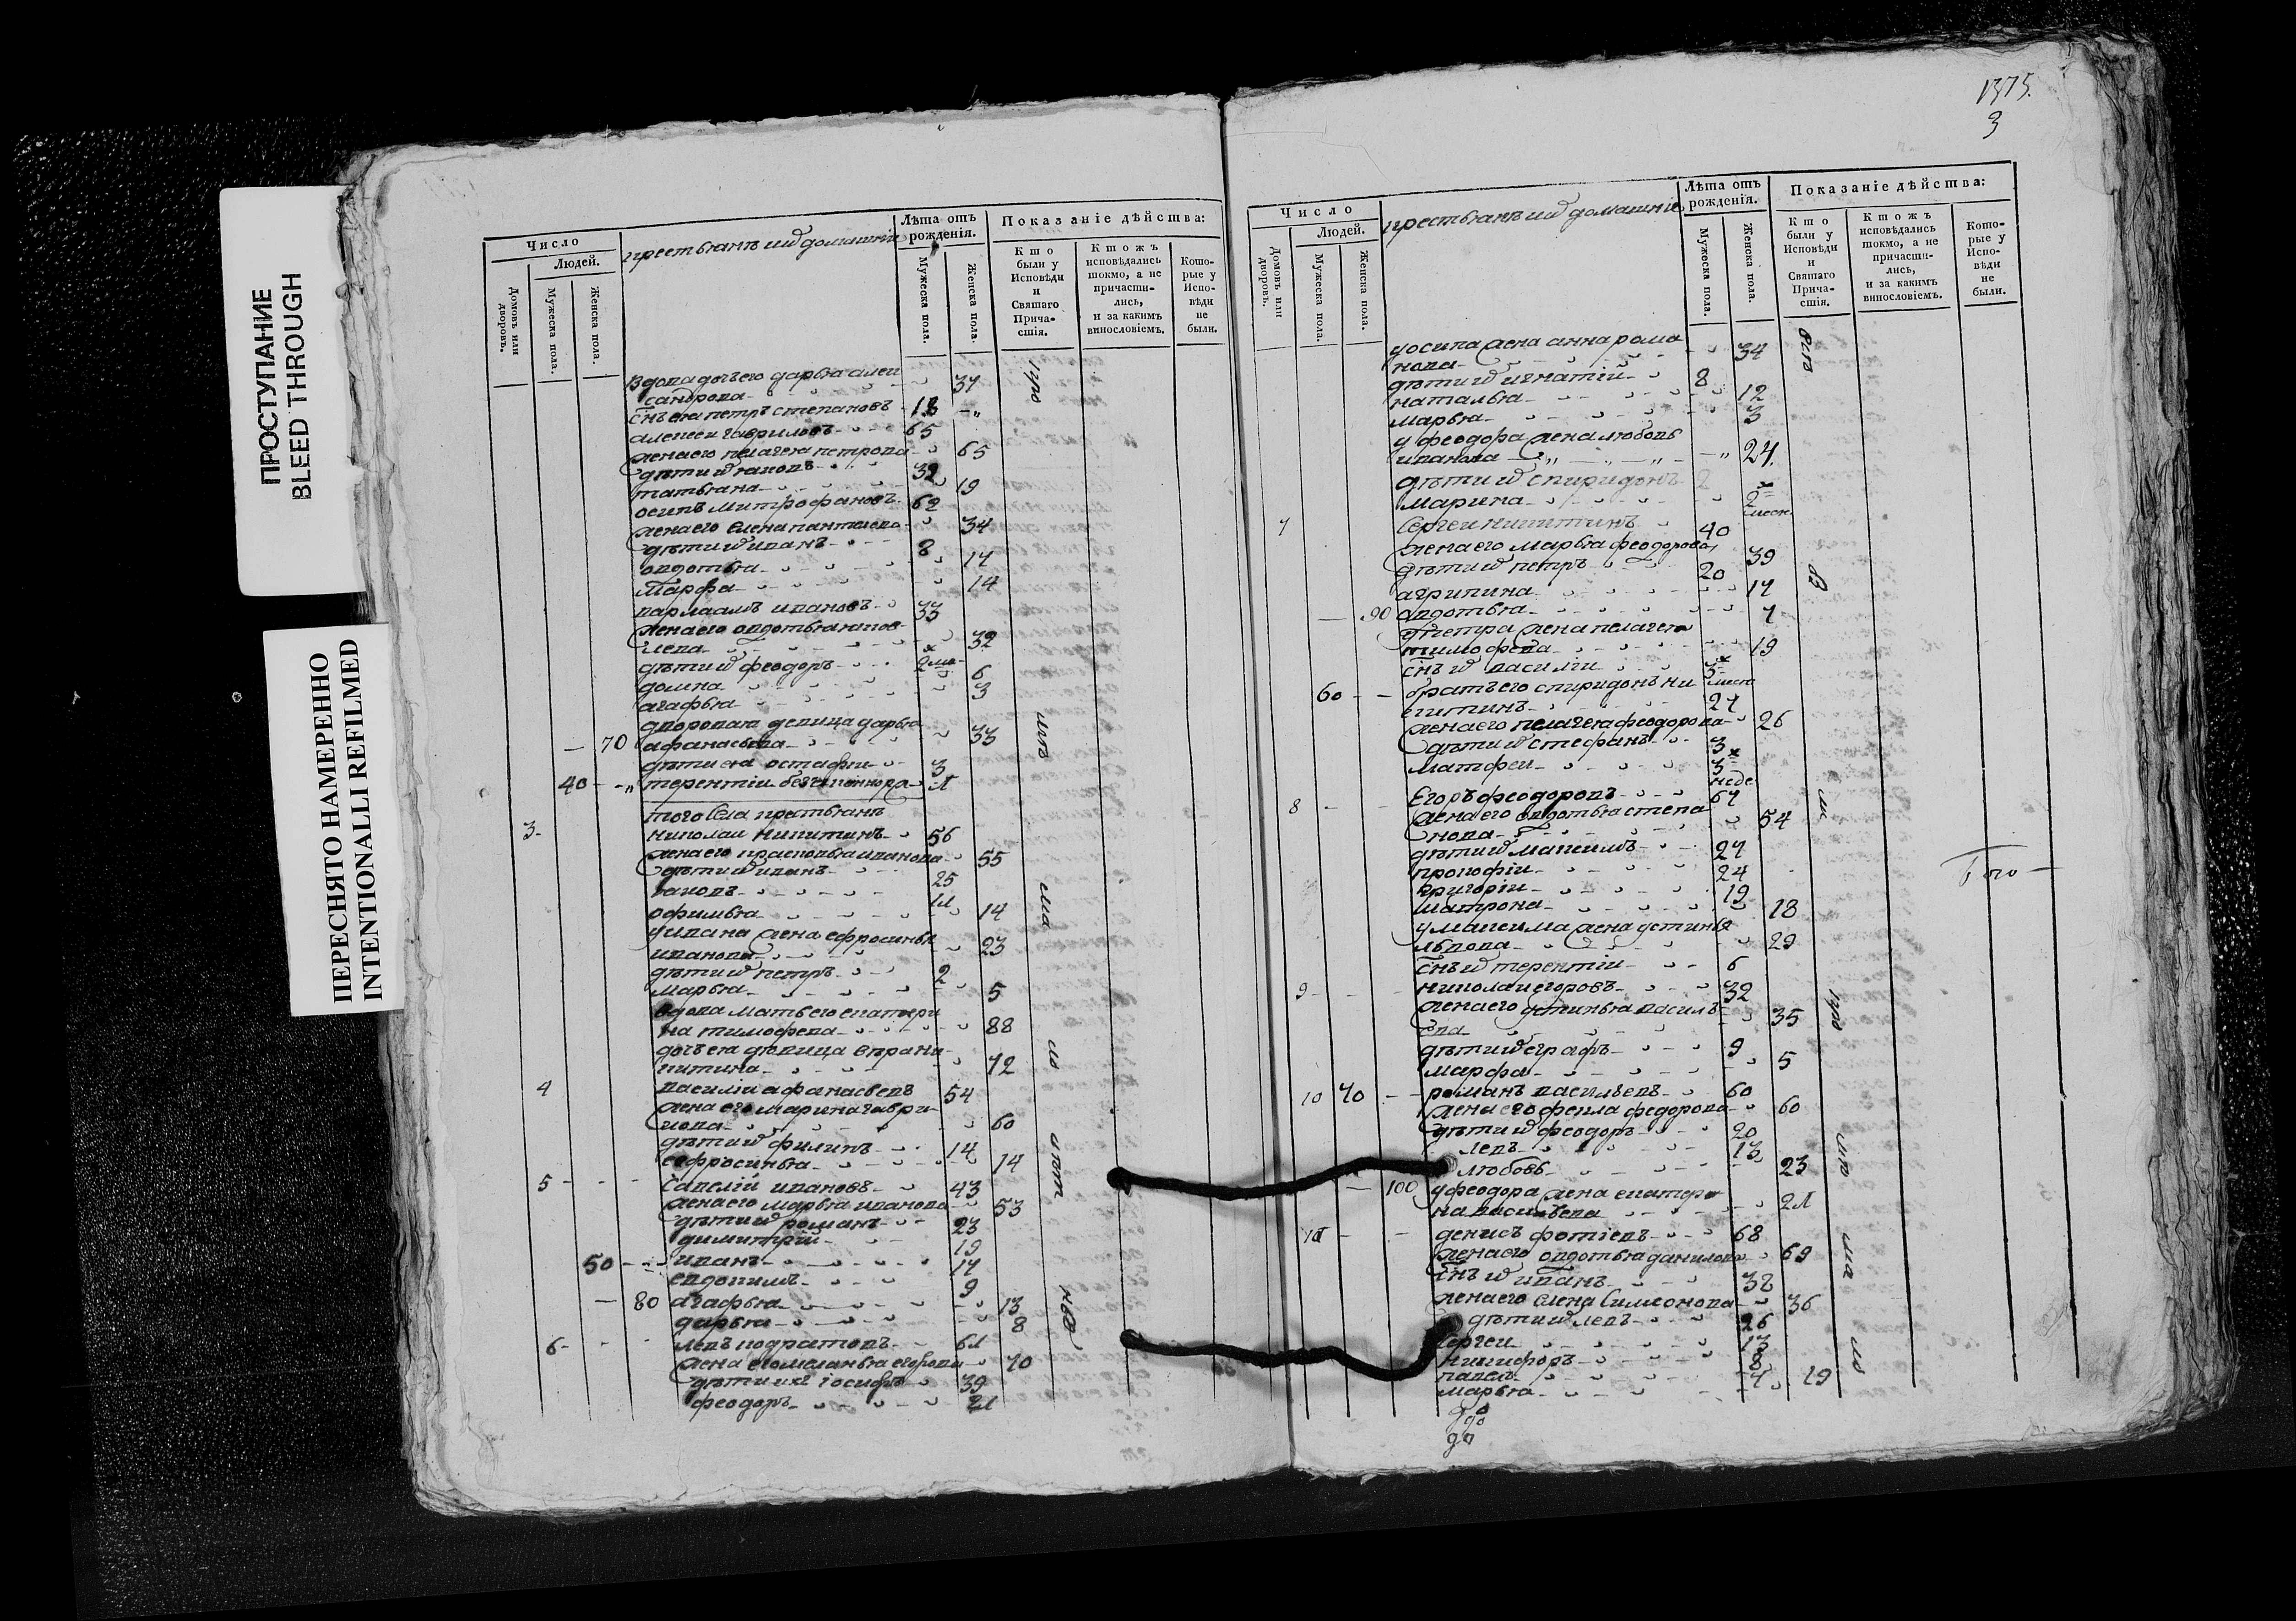 ПРОСТУПАНИЕ
BLEED THROUGH
ПЕРЕСНЯТО НАМЕРЕННО
INTENTIONALLI REFILMED
Число
Людей.
Домовъ или дворовъ.
Мужеска пола.
Женска пола.
крестьянъ и ихъ домашнихъ
Лѣта отъ рожденiя.
Мужеска пола.
Женска пола.
Показанiе дѣйства:
Кто были у Исповѣди и Святаго Прича-стiя.
Ктожъ исповѣдались токмо, а не причасти-лись, и за какимъ винословiемъ.
Кото-рые у Испо-вѣди не были.
вдова дочь его дарья алек
сандрова 37
снъ ея петръ степановъ 13
алексей гавриловъ 65
жена его пелагея петрова 65
дѣти их яковъ 32
татьяна 19
осипъ митрофановъ 62
жена его елена пантелева 34
дѣти их иванъ 8
овдотья 17
марфа 14
варлаамъ ивановъ 33
жена его овдотья яков
лева 32
дѣти их феодоръ 2
домна 6
агафья 3
дворовая девица дарья
70 афанасьева 33
дѣти ея остафеи 3
40 терентiи
того села крестьянъ
3 николаи никитинъ 56
жена его прасковья иванова 55
дѣти их иванъ 25
яковъ
офимья 14
у ивана жена ефросинья
иванова 23
дѣти их петръ 2
марья 5
вдова мать его екатери
на тимофева 88
дочь ея девица
китина 72
4 василiи афанасьевъ 54
жена его марина гаври
лова 60
дѣти их филипъ 14
ефросинья 14
5 савелiй ивановъ 43
жена его марья иванова 53
дѣти их романъ 23
димитрiй 19
50 иванъ 17
евдокимъ 9
80 агафья 13
дарья 8
6 левъ кодратовъ 61
жена его меланья егорова 70
дѣти их iосифъ 39
феодоръ 21
1375.
3
Число
Людей.
Домовъ или дворовъ.
Мужеска пола.
Женска пола.
крестьянъ и ихъ домашнiе
Лѣта отъ рожденiя.
Мужеска пола.
Женска пола.
Показанiе дѣйства:
Кто были у Исповѣди и Святаго Прича-стiя.
Ктожъ исповѣдались токмо, а не причасти-лись, и за какимъ винословiемъ.
Кото-рые у Испо-вѣди не были.
у осипа жена анна рома
нова 34
дѣти их игнатiй 8
наталья 12
марья 3
у феодора жена любовь
иванова 24
дѣти их спиридонъ 2
марина 2
7 Сергеи никитинъ 40
жена его марья феодорова 39
дѣти их петръ 20
агрипина 17
90 овдотья 7
у петра жена пелагея
тимофева 19
снъ их василiи 3
60 братъ его спиридонъ ни
китинъ 27
жена его пелагея феодорова 26
дѣти их стефанъ 3
матфеи 3 неде
8 Егоръ феодоровъ 67
жена его овдотья степа
нова 54
дѣти их максимъ 27
прокофiи 24
григорiи 19
матрона 18
у максима жена устинья
львова 29
снъ их терентiи 6
9 николаи егоровъ 32
жена его устинья василь
ева 35
дѣти их еграфъ 9
марфа 5
10 70 романъ васильевъ 60
жена его фекла федорова 60
дѣти их феодоръ 20
левъ 13
любовь 23
100 у феодора жена екатери
на васильева 21
11 денисъ фотiевъ 68
жена его овдотья данилова 69
снъ их иванъ 38
жена его елена симеонова 36
дѣти их левъ 26
сергеи 13
никифоръ 8
павелъ 7
марья 19